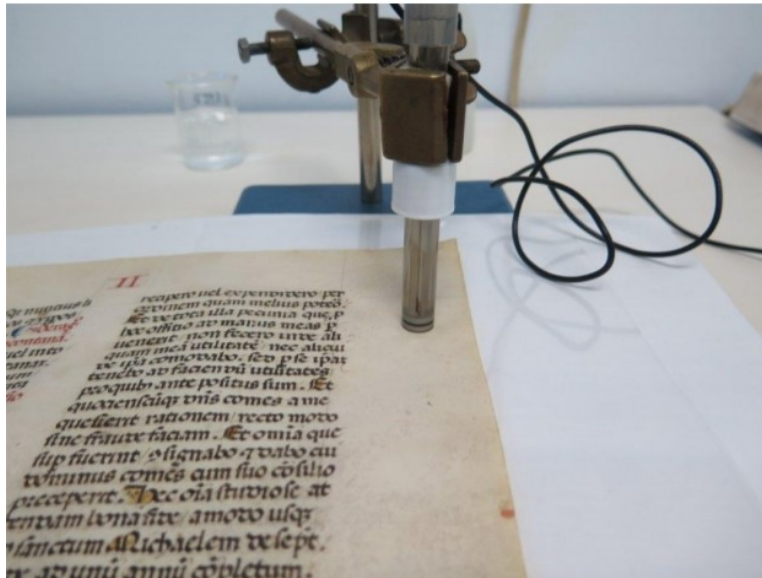 II
recipero uel expendidero per
ordinem quam melius poterō.
Et de tota illa pecunia que, p
hoc offitio ad manus meas p
uenerit. non fecero inde ali
quam meā utilitatē / nec alicui
de ipā comodabo. sed p se
tenebo ad faciendū utilitates
pro quib; ante positus sum. Et
quociensciq; dn̄s comes a me
quesierit rationem / recto modo
sine fraude faciam. Et om̄ia que
sup fuerint / ꝯsignabo ⁊ dabo cui
dominus comes cum suo cōsilio
preceperit. Hec oīa studiose at
tendam bona fide / amodo usq;
sanctum Michaelem de sept.
ad unū annū cōpletum.
uel into